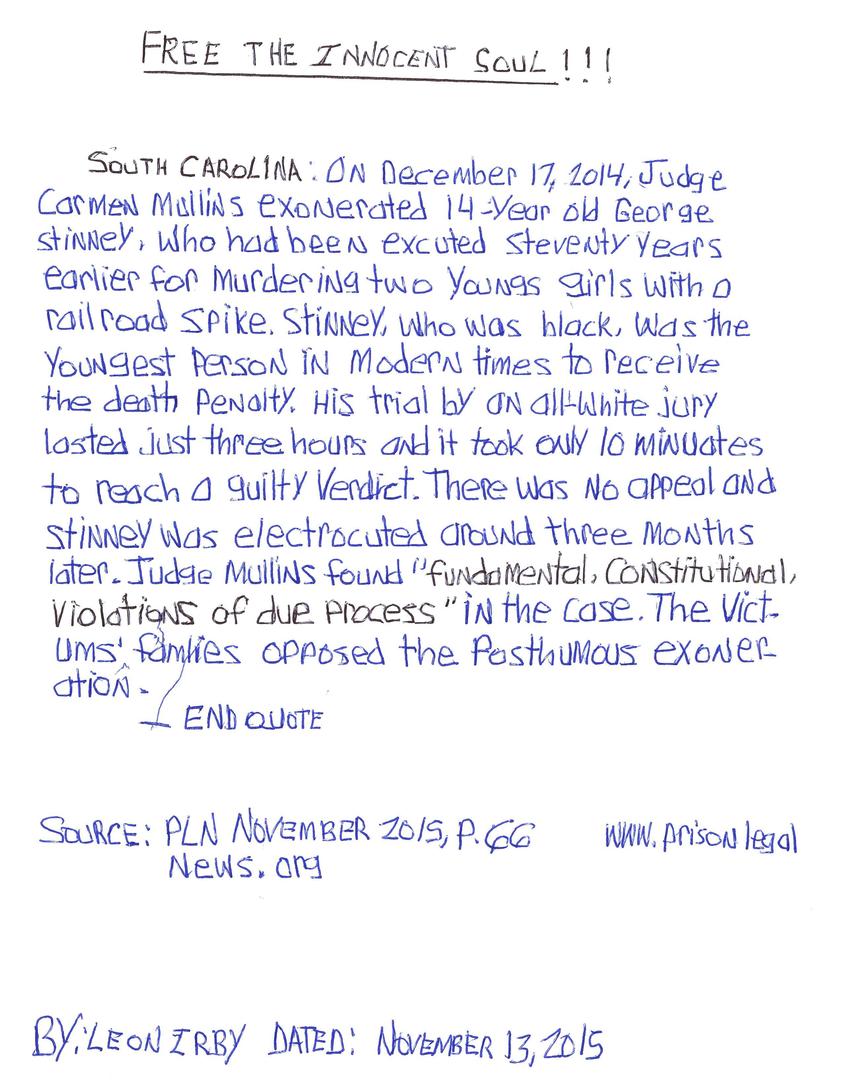 FREE THE INNOCENT SOUL!!!
SOUTH CAROLINA: ON December 17, 2014, Judge
Carmen Mullins exonerated 14-year old George
Stinney, who had been excuted steventy years
earlier for murdering two youngs girls with a
railroad spike. Stinney, who was black, was the
youngest person in modern times to receive
the death penalty. His trial by an all-white jury
lasted just three hours and it took only 10 minuates
to reach a guilty verdict. There was no appeal and
Stinney was electrocuted around three months
later. Judge Mullins found "fundamental, Constitutional,
violations of due process" in the case. The Vict-
ums' famlies opposed the posthumous exoner-
ation.
END QUOTE
SOURCE: PLN NOVEMBER 2015, P.66 www.prisonlegal
News.org
BY: LEON IRBY DATED: NOVEMBER 13, 2015